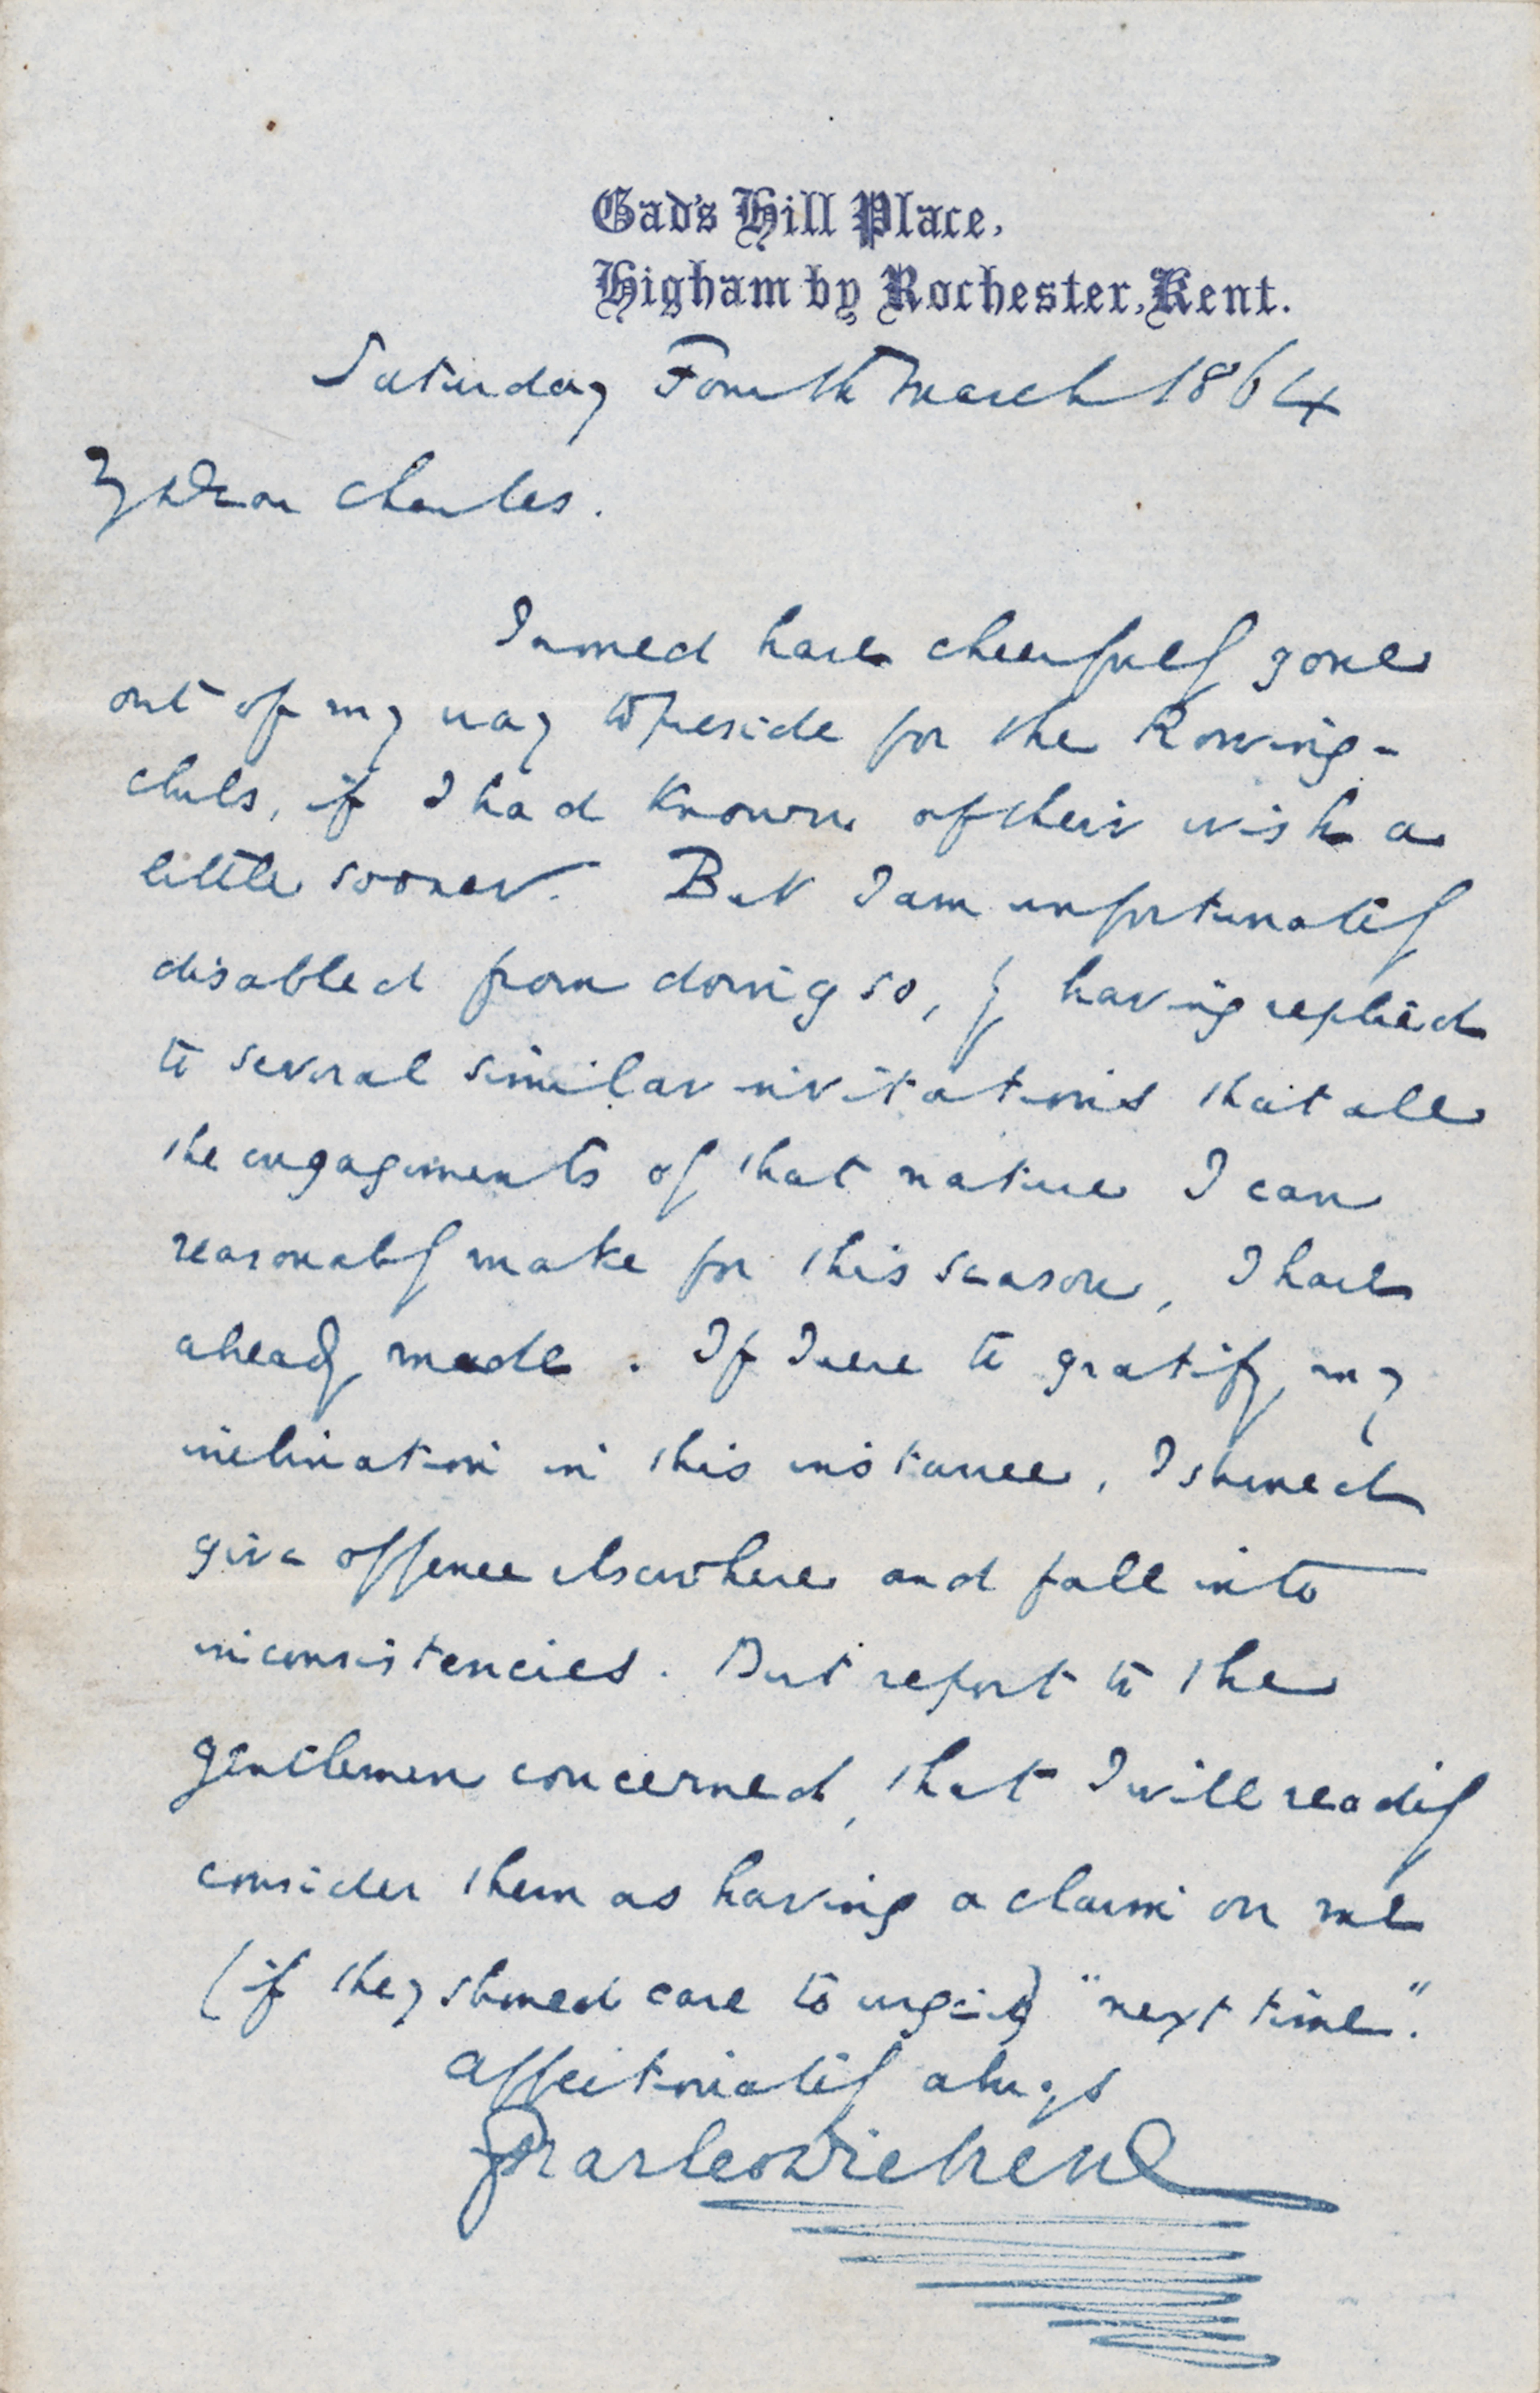 Gad's Hill Place,
Higham by Rochester, Kent.
Saturday Fourth March 1864
My Dear Charles.
I would have cheerfully gone
out of my way to preside for the Rowing-
clubs, if I had known of their wish a
little sooner. But I am unfortunately
disabled from doing so, by having replied
to several similar invitations that all
the engagements of that nature I can
reasonably make for this season, I have
already made. If I were to gratify my
inclination in this instance, I should
give offence elsewhere and fall into
inconsistencies. But report to the
gentlemen concerned, that I will readily
consider them as having a claim on me
(if they should care to urge it) "next time".
Affectionately always
Charles Dickens